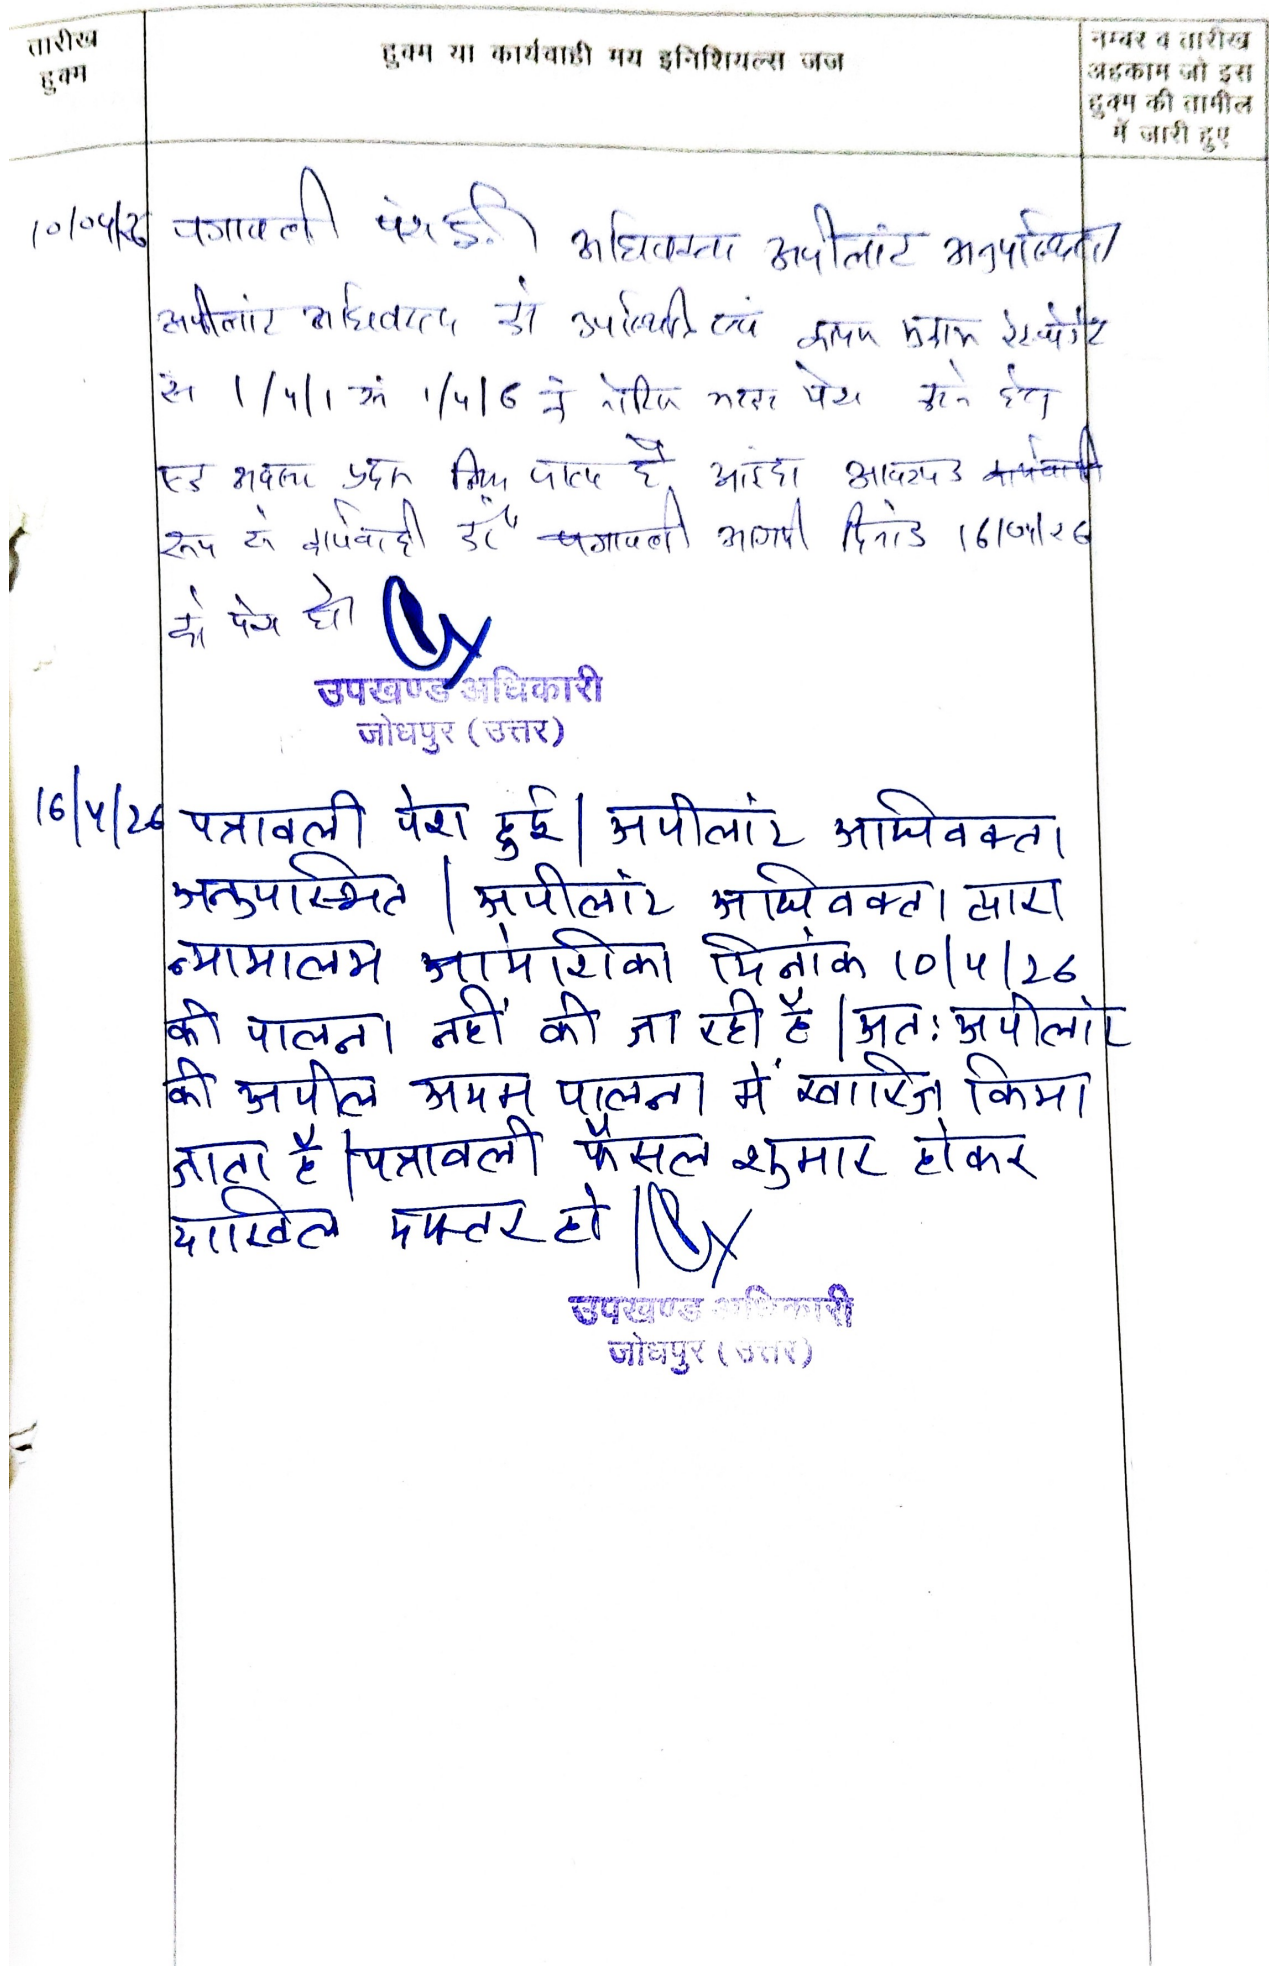 तारीख
हुक्म
हुक्म या कार्यवाही मय इनिशियल्स जज
नम्बर व तारीख
अहकाम जो इस
हुक्म की तामील
में जारी हुए
10/04/26 पत्रावली पेश हुई। अधिवक्ता अपीलांट अनुपस्थित।
अपीलांट अधिवक्ता की उपस्थिति एवं कायम मुकाम रेस्पोडेंट
सं 1/4/1 सं 1/4/6 के नोटिस पेश करने हेतु
एक अवसर प्रदान किया जाता है, आइंदा आवश्यक
रूप से कार्यवाही करें पत्रावली आगामी दिनांक 16/04/26
को पेश हो।
उपखण्ड अधिकारी
जोधपुर (उत्तर)
16/4/26 पत्रावली पेश हुई। अपीलांट अधिवक्ता
अनुपस्थित। अपीलांट अधिवक्ता द्वारा
न्यायालय आदेशिका दिनांक 10/4/26
की पालना नहीं की जा रही है। अतः अपीलांट
की अपील अदम पालना में खारिज किया
जाता है। पत्रावली फैसल शुमार होकर
दाखिल दफ्तर हो।
उपखण्ड अधिकारी
जोधपुर (उत्तर)